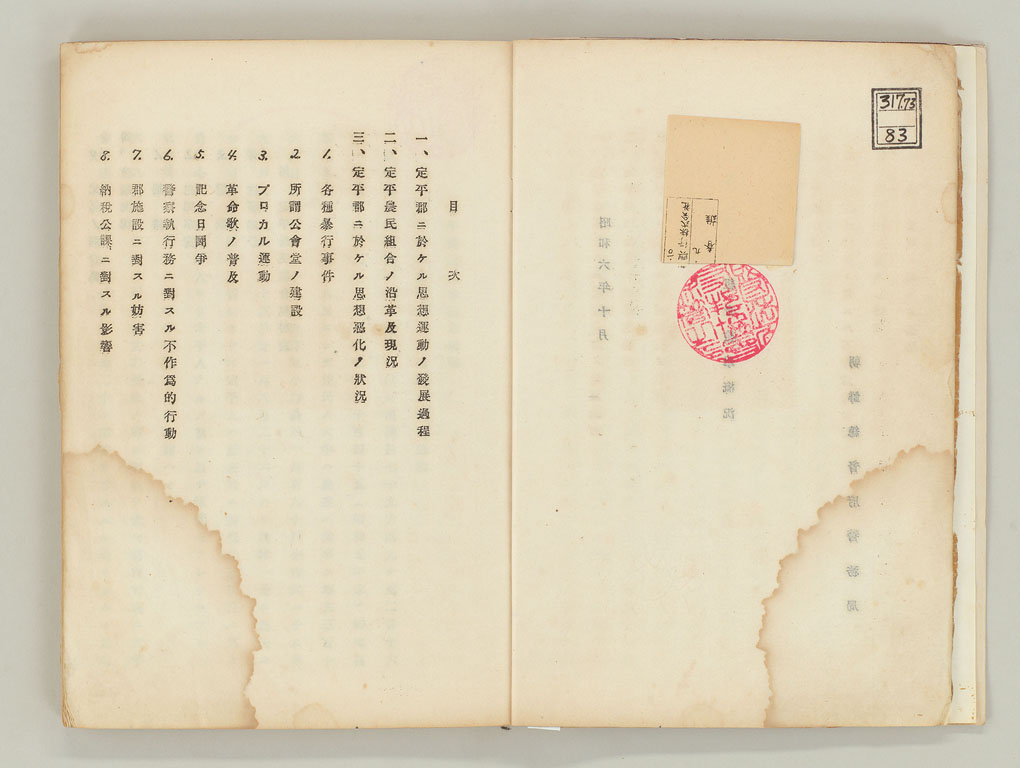 317.73
83
目次
一、定平郡ニ於ケル思想運動ノ發展過程
二、定平農民組合ノ沿革及現況
三、定平郡ニ於ケル思想惡化ノ狀況
1. 各種暴行事件
2. 所謂公會堂ノ建設
3. プロカル運動
4. 革命歌ノ普及
5. 記念日鬪爭
6. 警察執行務ニ對スル不作爲的行動
7. 郡施設ニ對スル妨害
8. 納稅公課ニ對スル影響